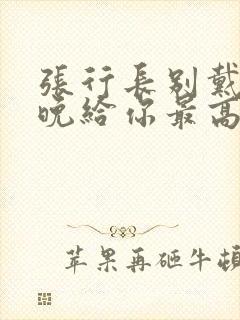 張行長別戴
晚給你最高
苹果再砸牛頓